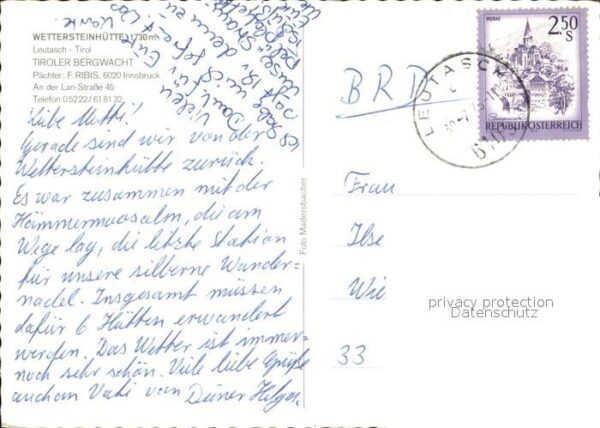 WETTERSTEINHÜTTE 1730 m
Leutasch - Tirol
TIROLER BERGWACHT
Pächter: F. RIBIS, 6020 Innsbruck
An der Lan-Straße 45
Telefon 05222/6 18 132
Liebe Mutti!
Gerade sind wir von der
Wettersteinhütte zurück.
Es war zusammen mit der
Hämmermoosalm, die am
Wege lag, die letzte Station
für unsere silberne Wander-
nadel. Insgesamt müssen
dafür 6 Hütten erwandert
werden. Das Wetter ist immer
noch sehr schön. Viele liebe Grüße
auch an Vati von Deiner Helga.
Vielen
Dank für Eure
Karte.
Foto Madersbacher
BRD
LEUTASCH
610
2.50
S
MURAU
REPUBLIK ÖSTERREICH
Frau
Ilse
Wie
33
privacy protection
Datenschutz